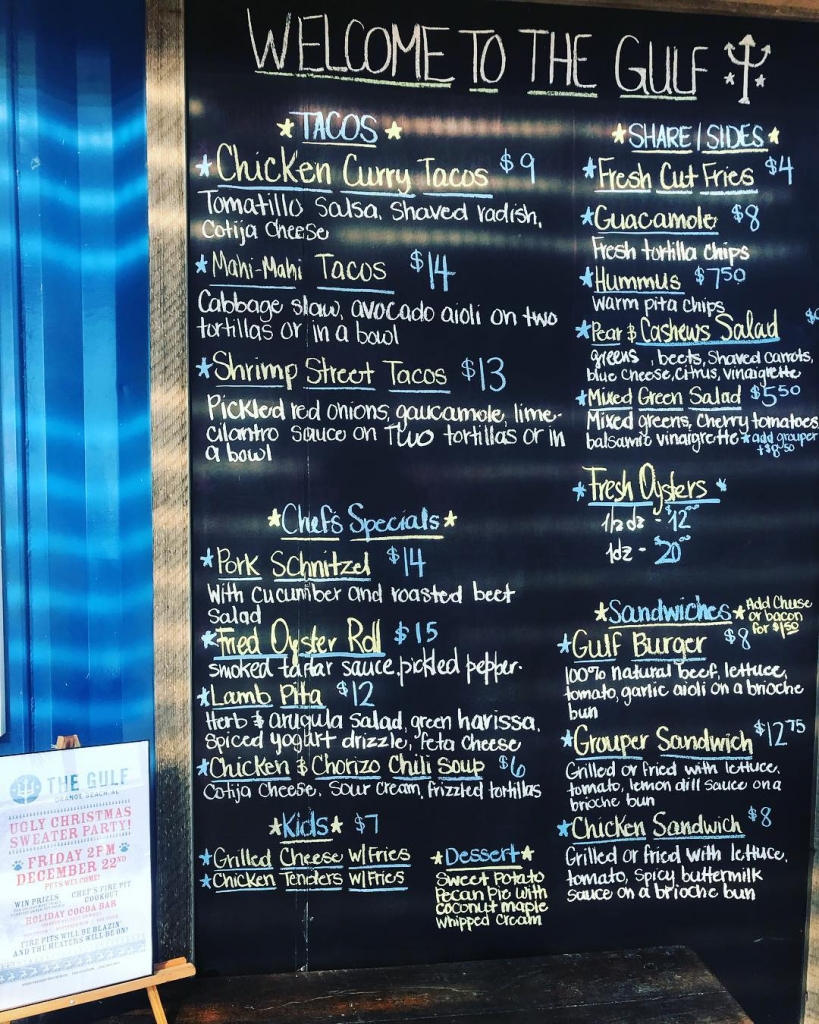 WELCOME TO THE GULF
TACOS
Chicken Curry Tacos $9
Tomatillo Salsa, Shaved radish,
Cotija Cheese
Mahi-Mahi Tacos $14
Cabbage slaw, avocado aioli on two
tortillas or in a bowl
Shrimp Street Tacos $13
Pickled red onions, gaucamole, lime-
cilantro sauce on Two tortillas or in
a bowl
Chef's Specials
Pork Schnitzel $14
With cucumber and roasted beet
Salad
Fried Oyster Roll $15
smoked tartar sauce, pickled pepper.
Lamb Pita $12
Herb & arugula salad, green harissa,
Spiced yogurt drizzle, feta cheese
Chicken & Chorizo Chili Soup $6
Cotija Cheese, Sour Cream, frizzled tortillas
Kids $7
Grilled Cheese w/Fries
Chicken Tenders w/Fries
Dessert
Sweet Potato
Pecan Pie with
coconut maple
whipped cream
SHARE/SIDES
Fresh Cut Fries $4
Guacamole $8
Fresh tortilla chips
Hummus $7.50
warm pita chips
Pear & Cashews Salad
greens, beets, Shaved carrots,
blue cheese, citrus, vinaigrette
Mixed Green Salad $5.50
Mixed greens, cherry tomatoes
balsamic vinaigrette *add grouper
+$8.50
Fresh Oysters
1/2 dz - $12.00
1dz - $20.00
Sandwiches
Add Cheese
or bacon
for $1.50
Gulf Burger $8
100% natural beef, lettuce,
tomato, garlic aioli on a brioche
bun
Grouper Sandwich $12.75
Grilled or fried with lettuce,
tomato, lemon dill sauce on a
brioche bun
Chicken Sandwich $8
Grilled or fried with lettuce,
tomato, spicy buttermilk
sauce on a brioche bun
THE GULF
ORANGE BEACH, AL
UGLY CHRISTMAS
SWEATER PARTY!
FRIDAY 2PM
DECEMBER 22ND
PETS WELCOME!
WIN PRIZES
CHEF'S FIRE PIT
COOKOUT
HOLIDAY COCOA BAR
FIRE PITS WILL BE BLAZIN'
AND THE HEATERS WILL BE ON!